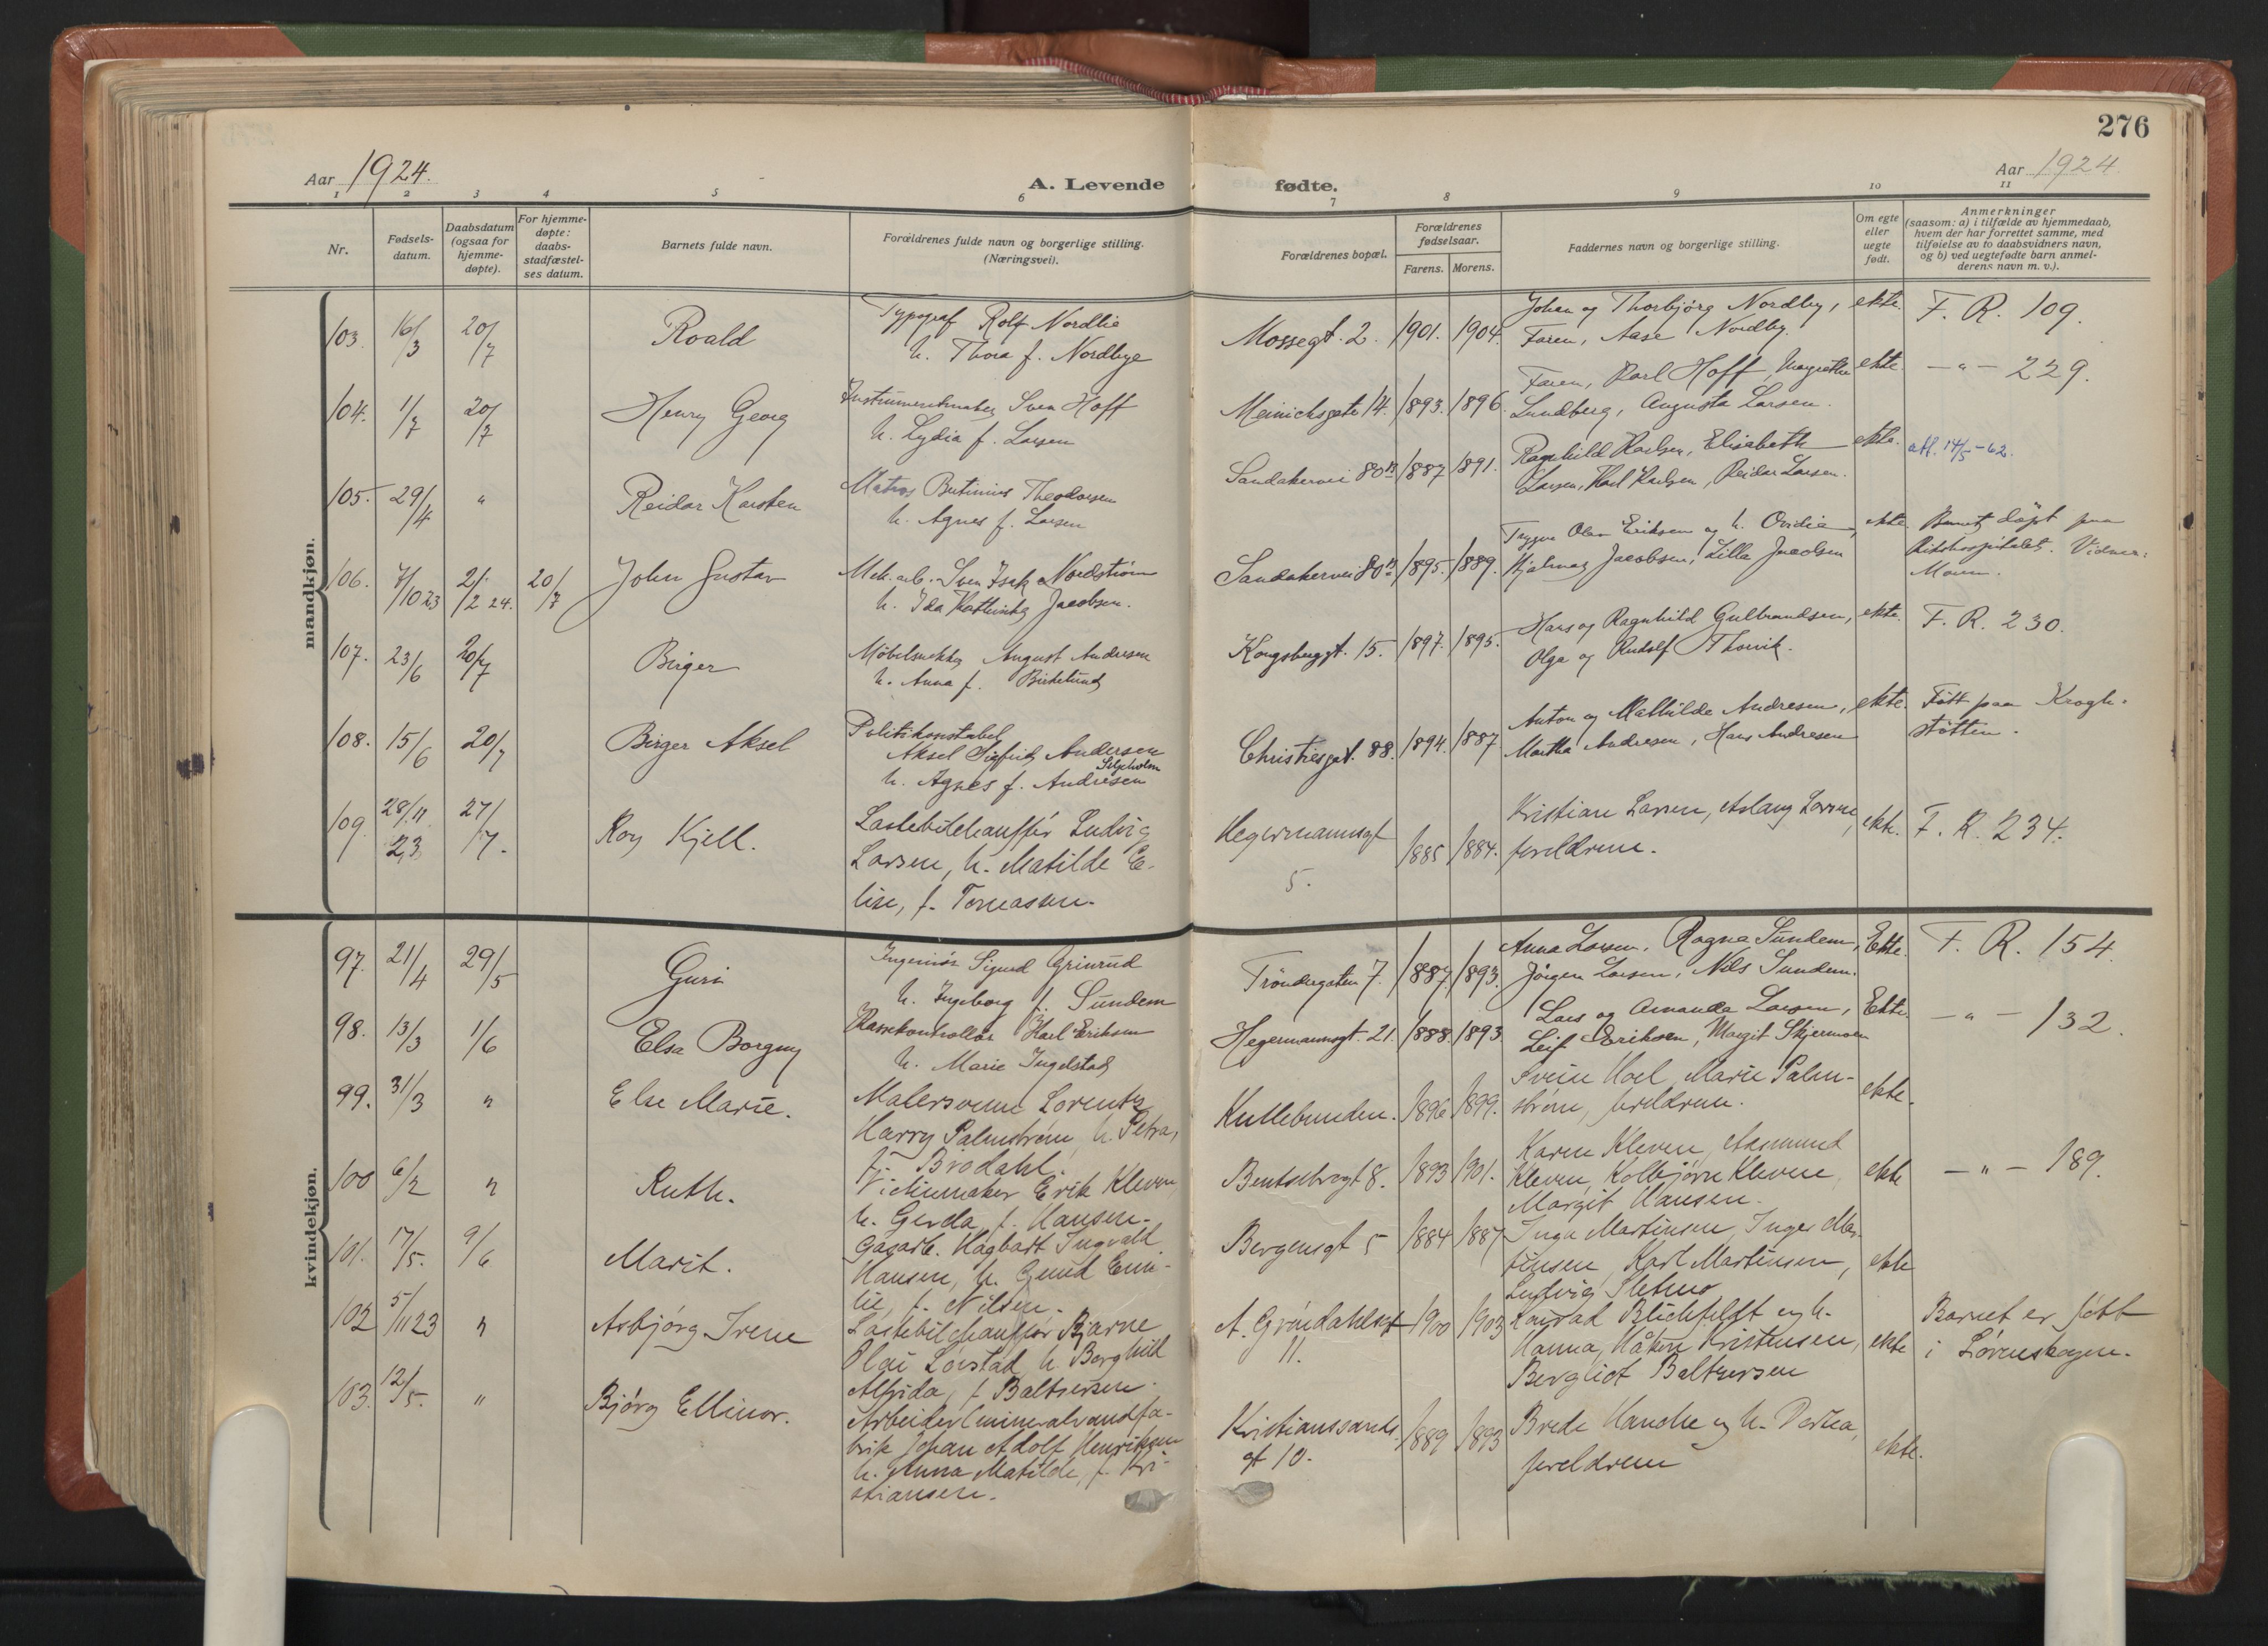 276
Aar 1924.
A. Levende
fødte.
Aar 1924
1 2 3 4 5 6 7 8 9 10 11
Nr.
Fødsels-
datum.
Daabsdatum
(ogsaa for
hjemme-
døpte).
For hjemme-
døpte:
daabs-
stadfæstel-
ses datum.
Barnets fulde navn.
Forældrenes fulde navn og borgerlige stilling.
(Næringsvei).
Forældrenes bopæl.
Forældrenes
fødselsaar.
Farens. Morens.
Faddernes navn og borgerlige stilling.
Om egte
eller
uegte
født.
Anmerkninger
(saasom: a) i tilfælde av hjemmedaab,
hvem der har forrettet samme, med
tilføielse av to daabsvidners navn,
og b) ved uegtefødte barn anmel-
derens navn m. v.).
mandkjøn.
103. 16/3 20/7 Roald
Typograf Rolf Nordlie
h. Thora f. Nordbye
Mossegt. 2. 1901. 1904.
Johan og Thorbjørg Nordby,
Faren, Aase Nordby.
ekte. F. R. 109.
104. 1/7 20/7 Henry Georg
Instrumentmaker Sven Hoff
h. Lydia f. Larsen
Meinichsgate 14. 1893. 1896.
Faren, Karl Hoff, Margrethe
Lundberg, Augusta Larsen.
ekte. — " — 229.
105. 29/4 " Reidar Karsten
Matros Theodorsen
h. Agnes f. Larsen
Sandakervei 80 B 1887 1891.
Ragnhild Karlsen, Elisabeth
Larsen, Karl Karlsen, Reidar Larsen.
ekte. att. 14/5-62.
106. 7/10 23 2/2 24. 20/7 John Gustav
Mek. arb. Sven Isak Nordstrøm
h. Ida Kathinka Jacobsen.
Sandakervei 80 B 1895. 1889.
Trygve Olav Eriksen og h. Ovidia,
Hjalmar Jacobsen, Lilla Jacobsen
ekte Barnet døpt paa
Rikshospitalet. Vidner:
Moren.
107. 23/6 20/7 Birger
Møbelsnekker August Andresen
h. Anna f. Birkelund
Kongsberggt. 15. 1897. 1895.
Hans og Ragnhild Gulbrandsen,
Olga og Rudolf Thorvik.
ekte. F. R. 230.
108. 15/6 20/7 Birger Aksel
Politikonstabel
Aksel Sigfrid Andersen
h. Agnes f. Andresen
Christiesgt. 88. 1894. 1887
Anton og Mathilde Andresen,
Martha Andresen, Hans Andresen
ekte. Født paa Krogh-
støtten.
109. 28/11 23 27/7. Roy Kjell.
Lastebilchauffør Ludvig
Larsen, h. Matilde E-
lise, f. Tomassen.
Hegermannsgt
5.
1885 1884.
Kristian Larsen, Aslaug Larsen,
foreldrene.
ekte. F. R. 234.
kvindekjøn.
97. 21/4 29/5 Guri
Ingeniør Sigurd Grinrud
h. Ingeborg f. Sundem
Trondergaten 7. 1887. 1893.
Anna Larsen, Ragna Sundem,
Jørgen Larsen, Nils Sundem.
Ekte. F. R. 154.
98. 13/3 1/6 Elsa Borgny
Kassekontrollør Karl Eriksen
h. Marie Ingelstad
Hegermannsgt. 21. 1888. 1893.
Lars og Amanda Larsen,
Leif Eriksen, Margit Skjermoen
Ekte. — " — 132.
99. 31/3 " Else Marie.
Malersvenn Lorentz
Harry Palmstrøm, h. Petra,
f. Brodahl.
Kullebunden. 1896 1899.
Svein Hoel, Marie Palm-
strøm, foreldrene.
ekte.
100 6/2 " Ruth.
Erik Kleven
h. Gerda, f. Hansen.
Bentsebrogt 8. 1893 1901.
Karen Kleven, Aasmund
Kleven, Kolbjørn Kleven,
Margit Hansen.
ekte — " — 189.
101. 17/5. 9/6 Marit.
Gasarb. Hagbart Ingvald
Hansen, h. Gund Emi-
lie, f. Nilsen.
Bergensgt 5 1884 1887
Inga Martinsen, Inger Mar-
tinsen, Karl Martinsen,
Ludvig Sletmo
ekte
102 5/11 23 " Asbjørg Irene
Lastebilchauffør Bjarne
Olai Lørstad, h. Borghild
Alfrida, f. Baltsersen.
A. Grøndahlsgt
11.
1900 1903
Konrad Blichfeldt og h.
Hanna, Håkon Kristensen,
Bergliot Baltsersen
ekte Barnet er født
i Lørenskogen.
103. 12/5. " Bjørg Ellinor.
Arbeider (mineralvandfa-
brik Johan Adolf Henriksen
h. Anna Matilde, f. Kri-
stiansen.
Kristianssands
gt 10.
1889 1893
Brede Hanche og h. Dortea,
foreldrene
ekte.